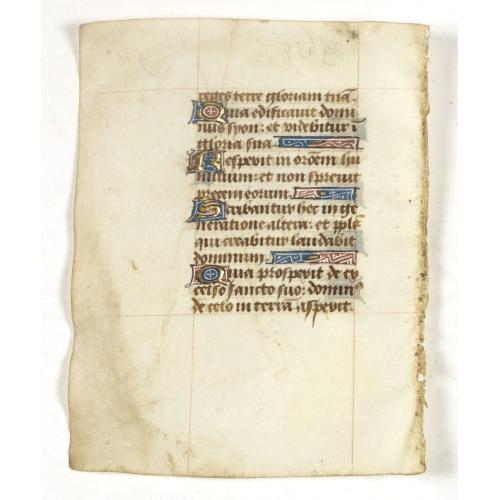 reges terre gloriam tuã.
Qua edificauit domi
nus syon: et videbitur ĩ
gloria sua.
Respexit in orõem hu
milium: et non spreuit
precem eorum.
Scribantur hec in ge
neratione altera: et pp̃ls
qui creabitur laudabit
dominum.
Quia prospexit de ex
celso sancto suo: domin9
de celo in terrã aspexit.